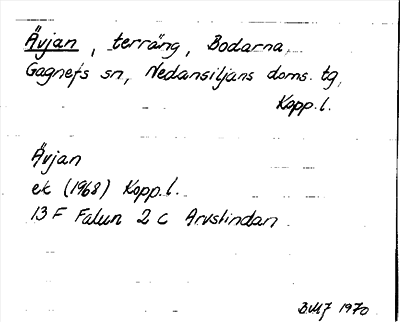 Ävjan, terräng, Bodarna,
Gagnefs sn, Nedansiljans doms. tg,
Kopp. l.
Ävjan
ek (1968) Kopp. l.
13 F Falun 2 c Arvslindan
BMJ 1970